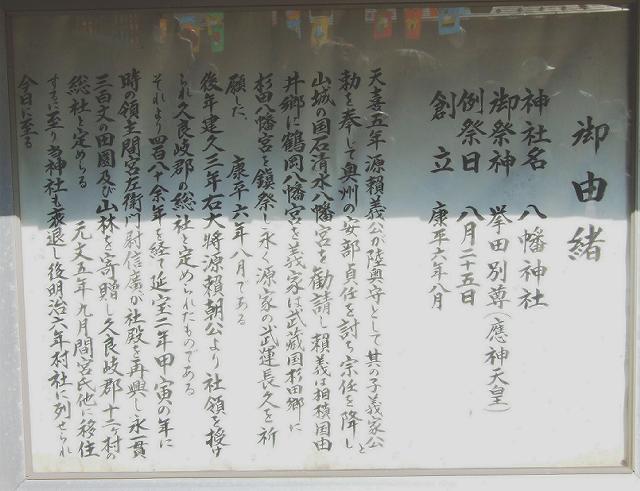 御由緒
神社名 八幡神社
御祭神 誉田別尊(應神天皇)
例祭日 八月二十五日
創立 康平六年八月
天喜五年源頼義公が陸奥守として其の子義家公と
勅を奉して奥州の安部貞任を討ち宗任を降し
山城の国石清水八幡宮を勧請し頼義は相模国由
井郷に鶴岡八幡宮を義家は武蔵国杉田郷に
杉田八幡宮を鎮祭し永く源家の武運長久を祈
願した 康平六年八月である
後年建久三年右大将源頼朝公より社領を授け
られ久良岐郡の総社と定められたものである
それより四百八十余年を経し延宝二年甲寅の年に
時の領主間宮左衛門尉信廣が社殿を再興し永一貫
三百文の田園及び山林を寄贈し久良岐郡十二ヶ村の
総社と定める 元文五年九月間宮氏他に移住
するに至り当神社も衰退し後明治六年村社に列せられ
今日に至る